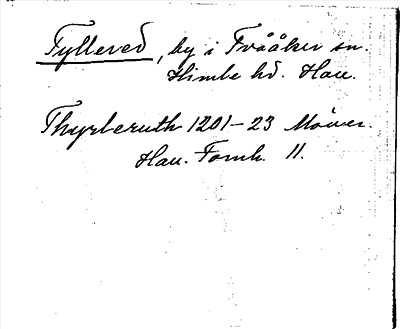 Fylleved, by i Tvååker sn.
Himle hd. Hall.
Thyrleruth 1201-23
Hall. Fornh. 11.